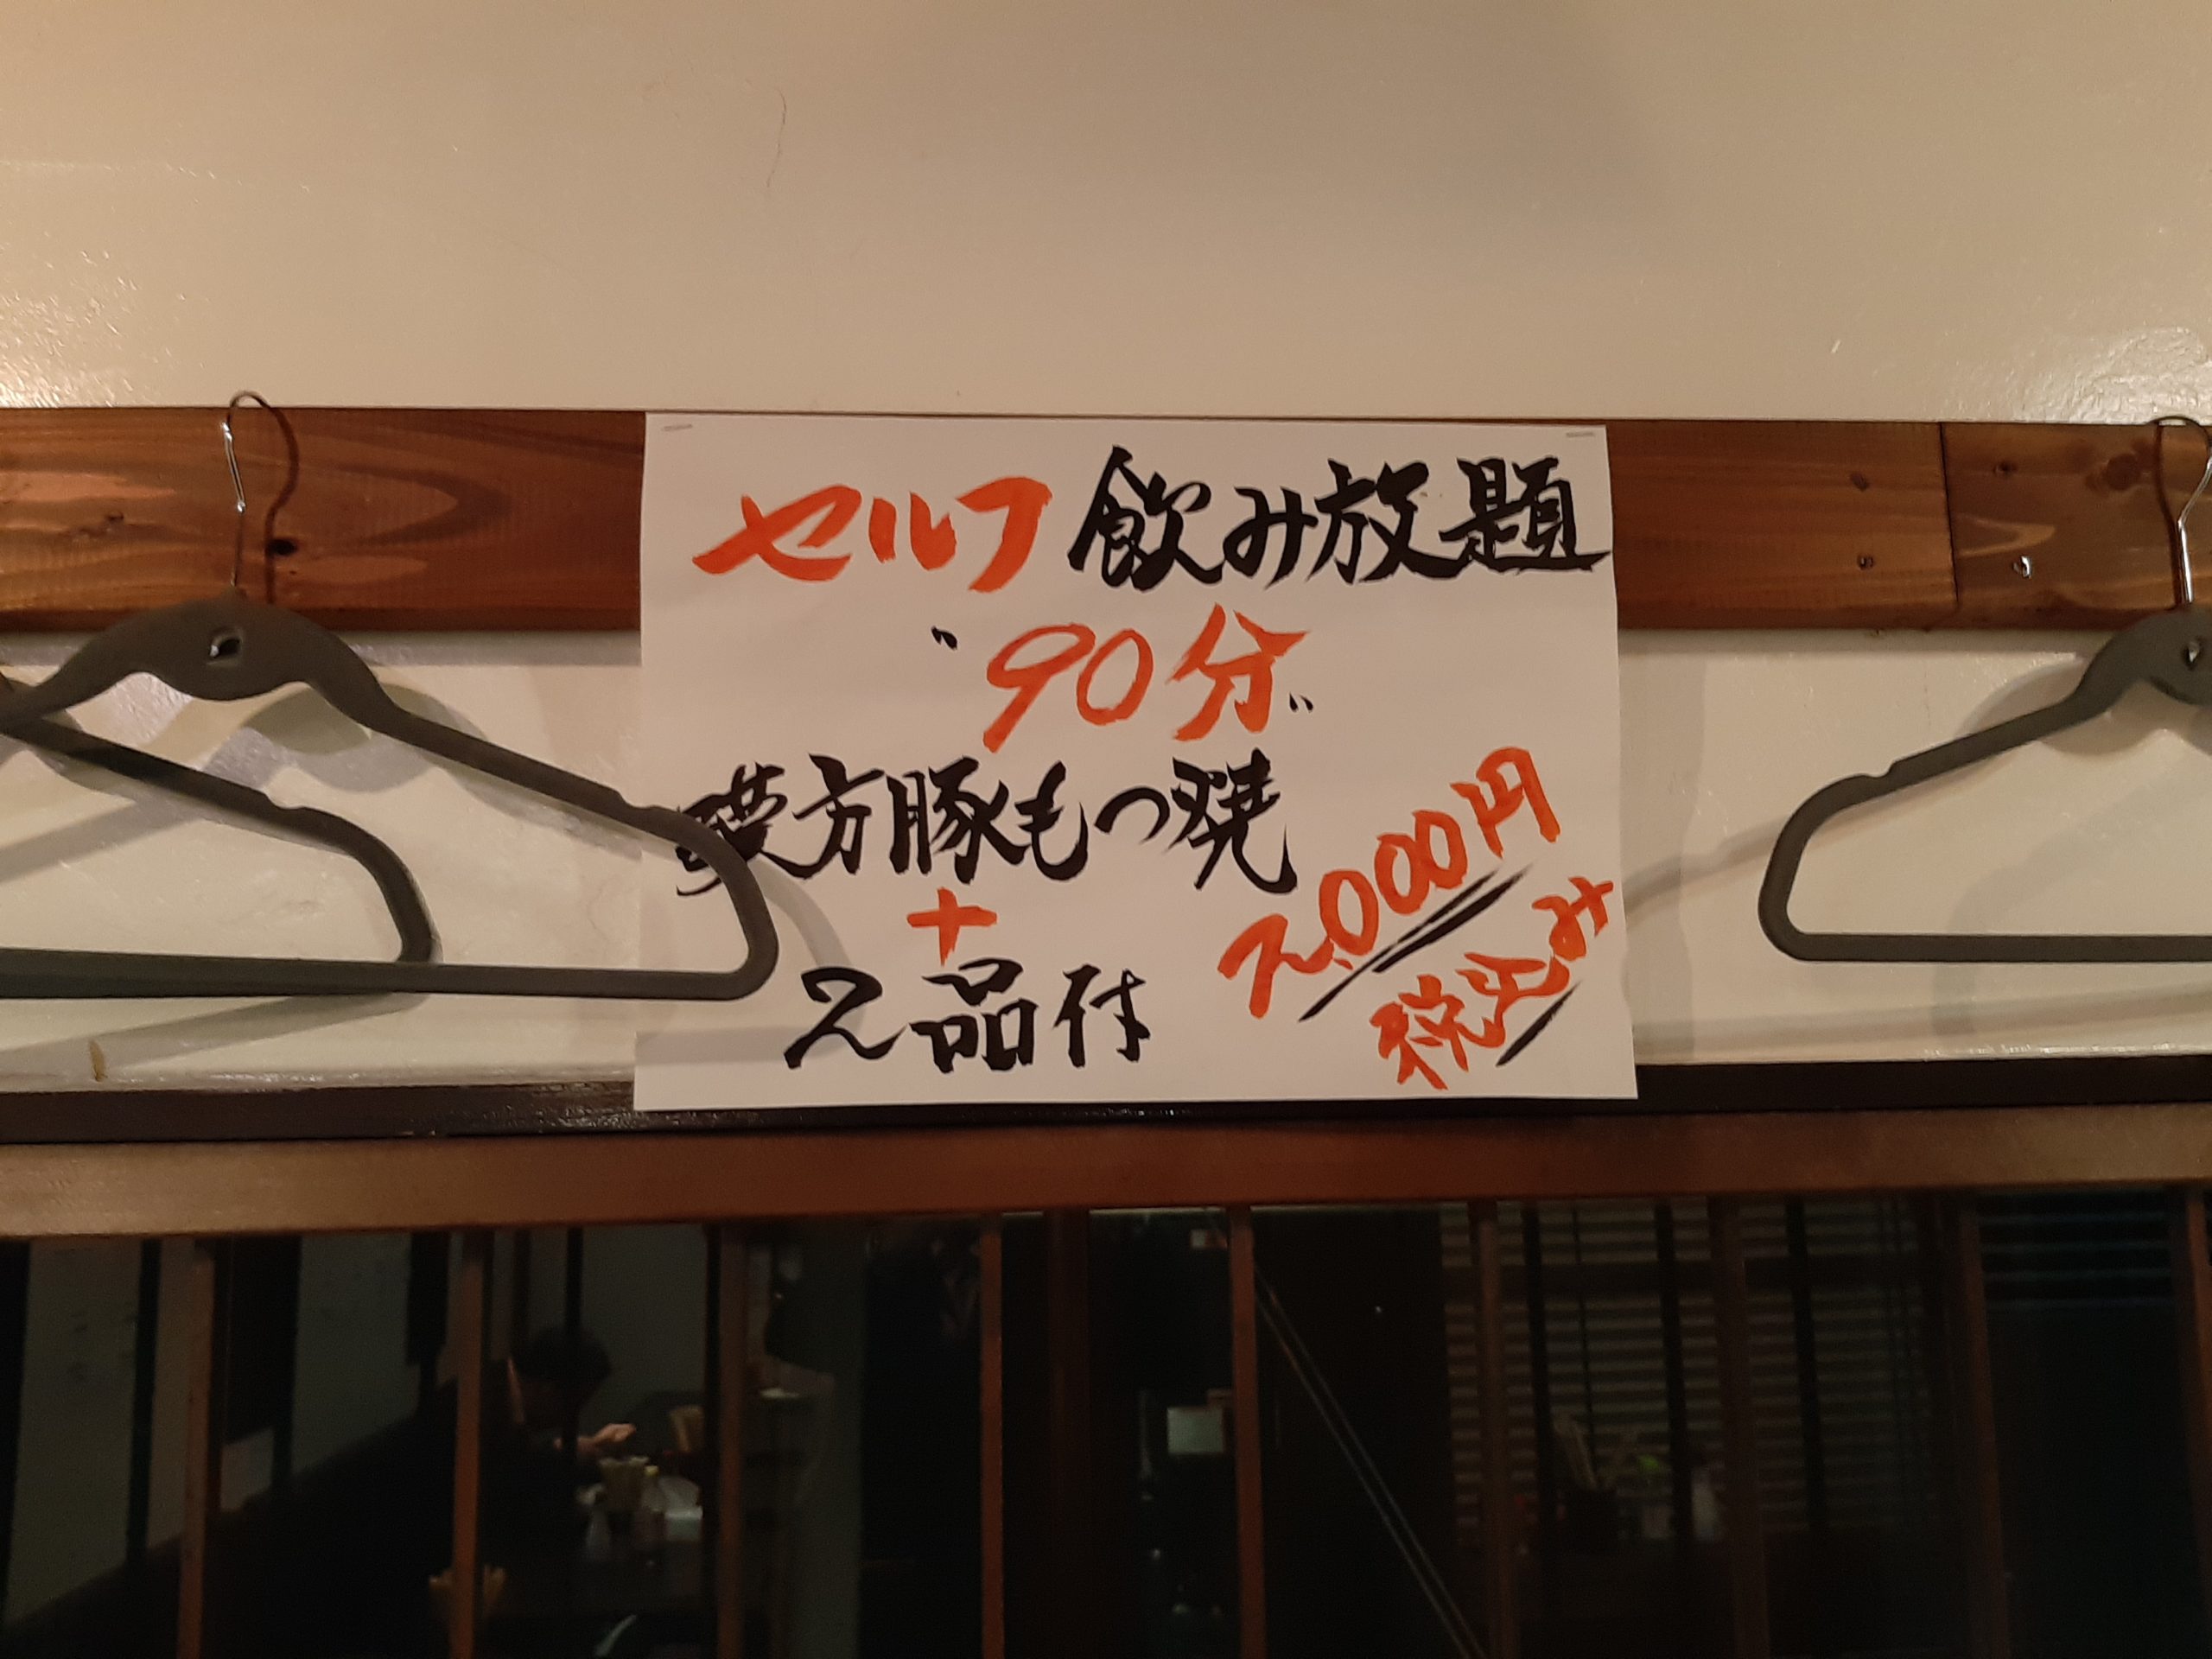 セルフ飲み放題
〝90分〟
漢方豚もつ焼
+
2品付
2,000円
税込み